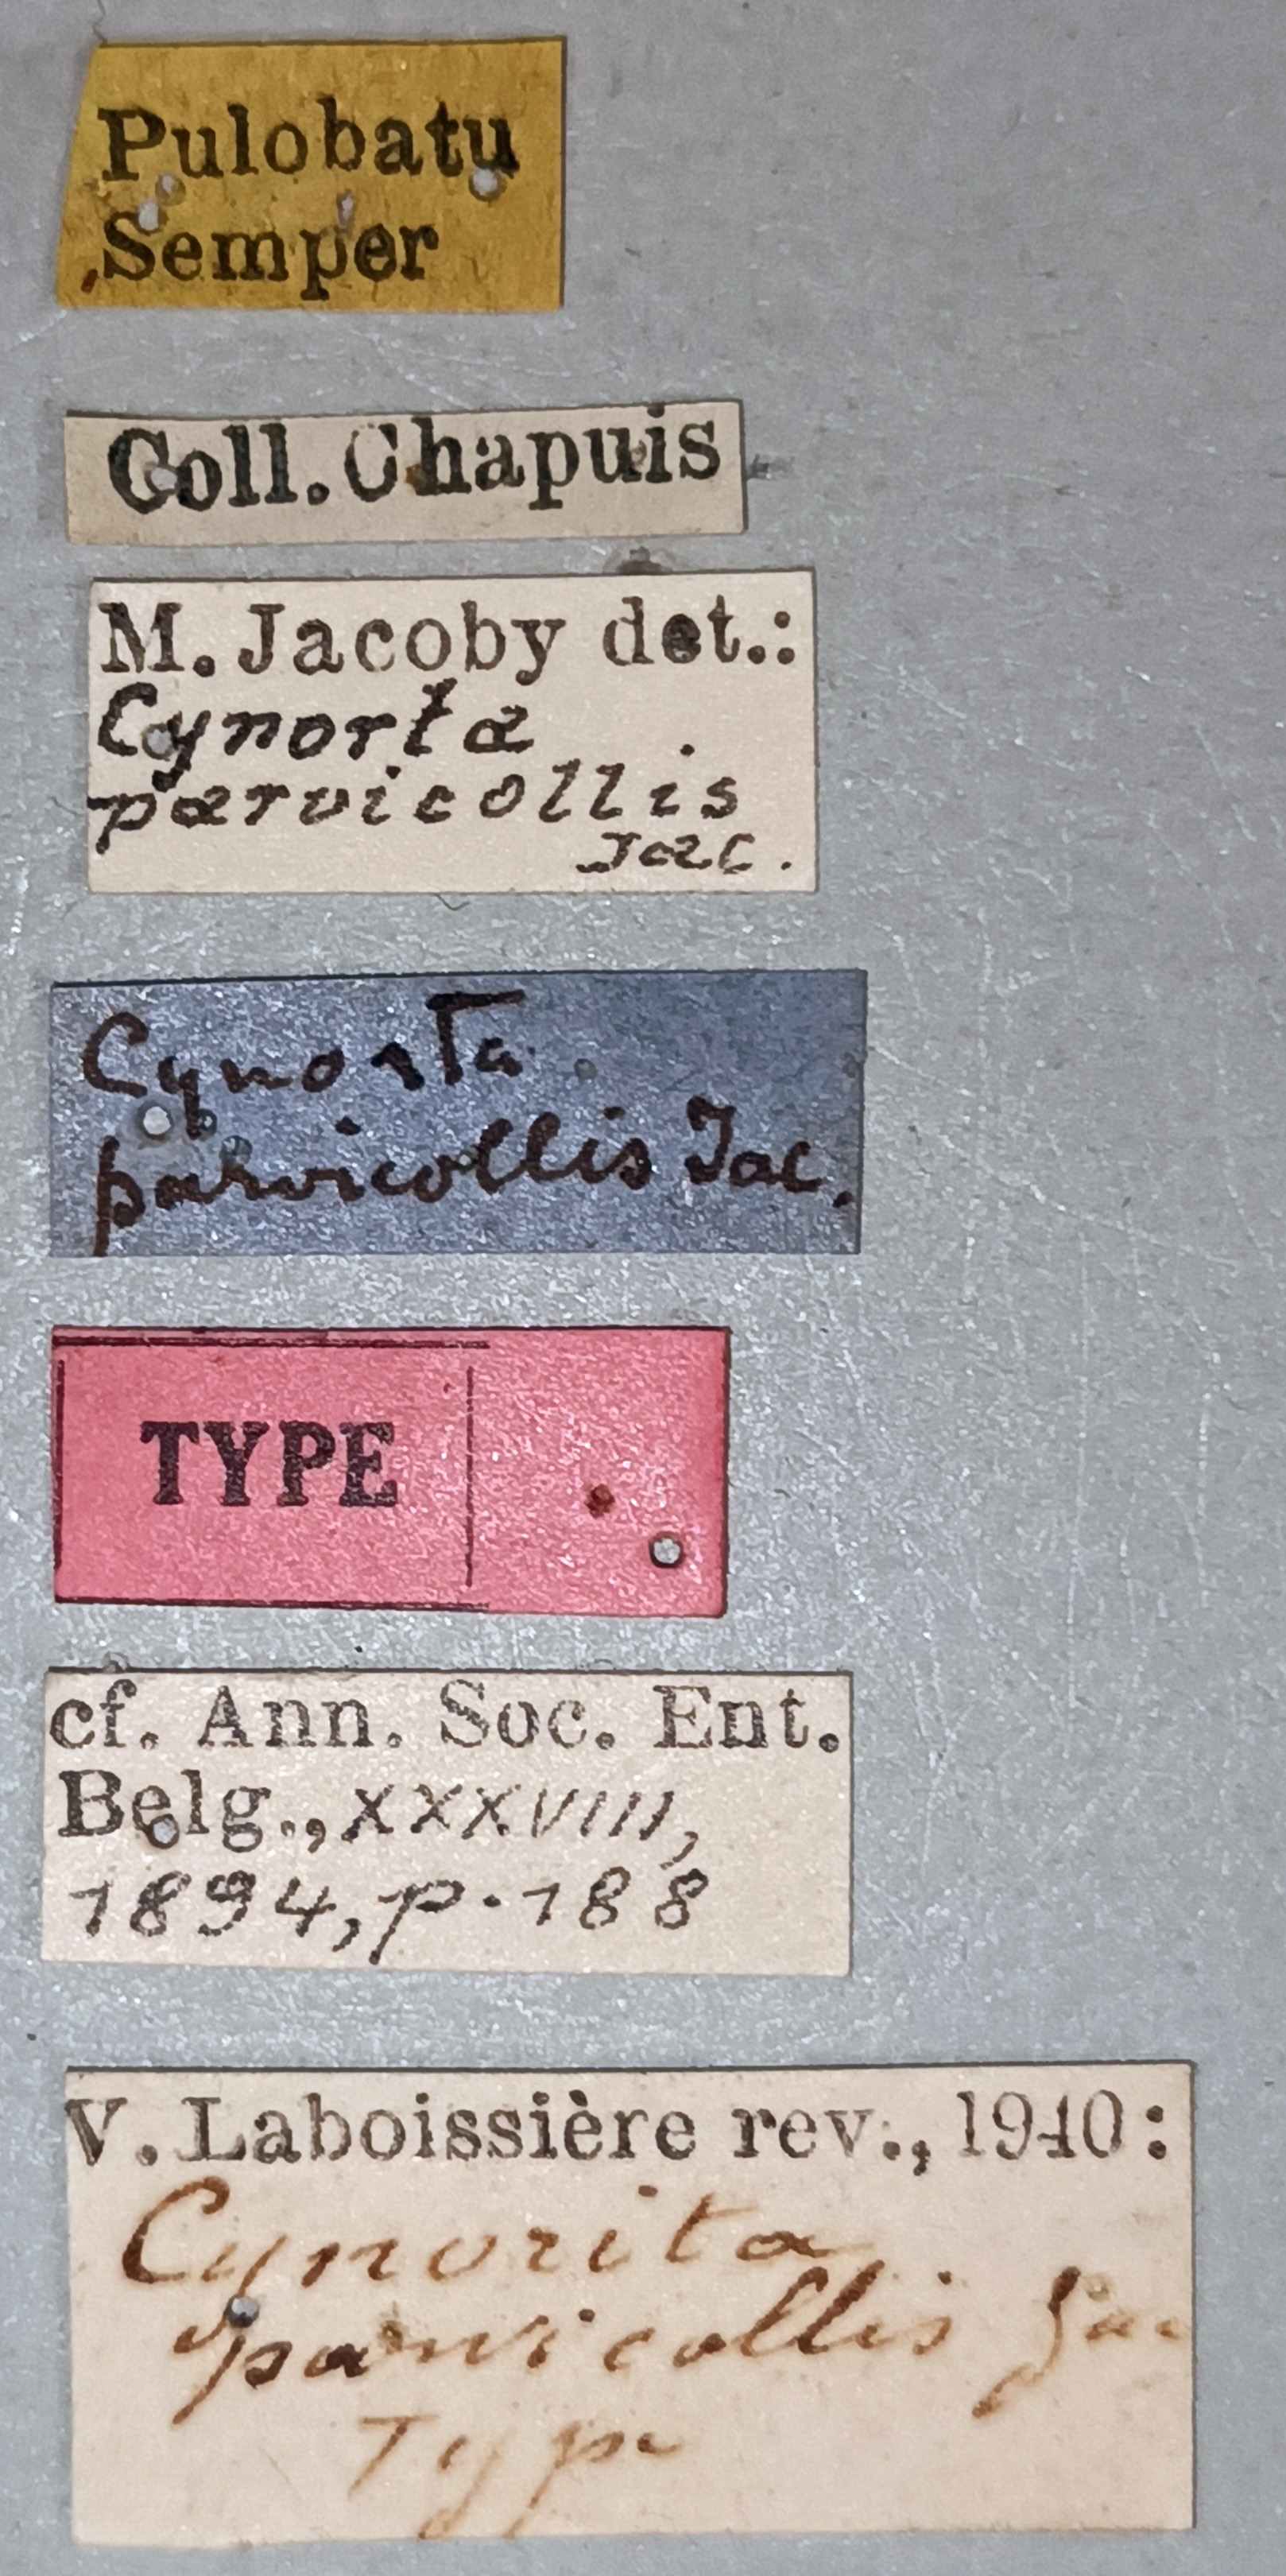 Pulobatu
Semper
Coll. Chapuis
M. Jacoby det.:
Cynorta
parvicollis
Jac.
Cynorta
parvicollis Jac.
TYPE
cf. Ann. Soc. Ent.
Belg., XXXVIII,
1894, p. 188
V. Laboissière rev., 1940:
Cynorita
parvicollis Jac
Type